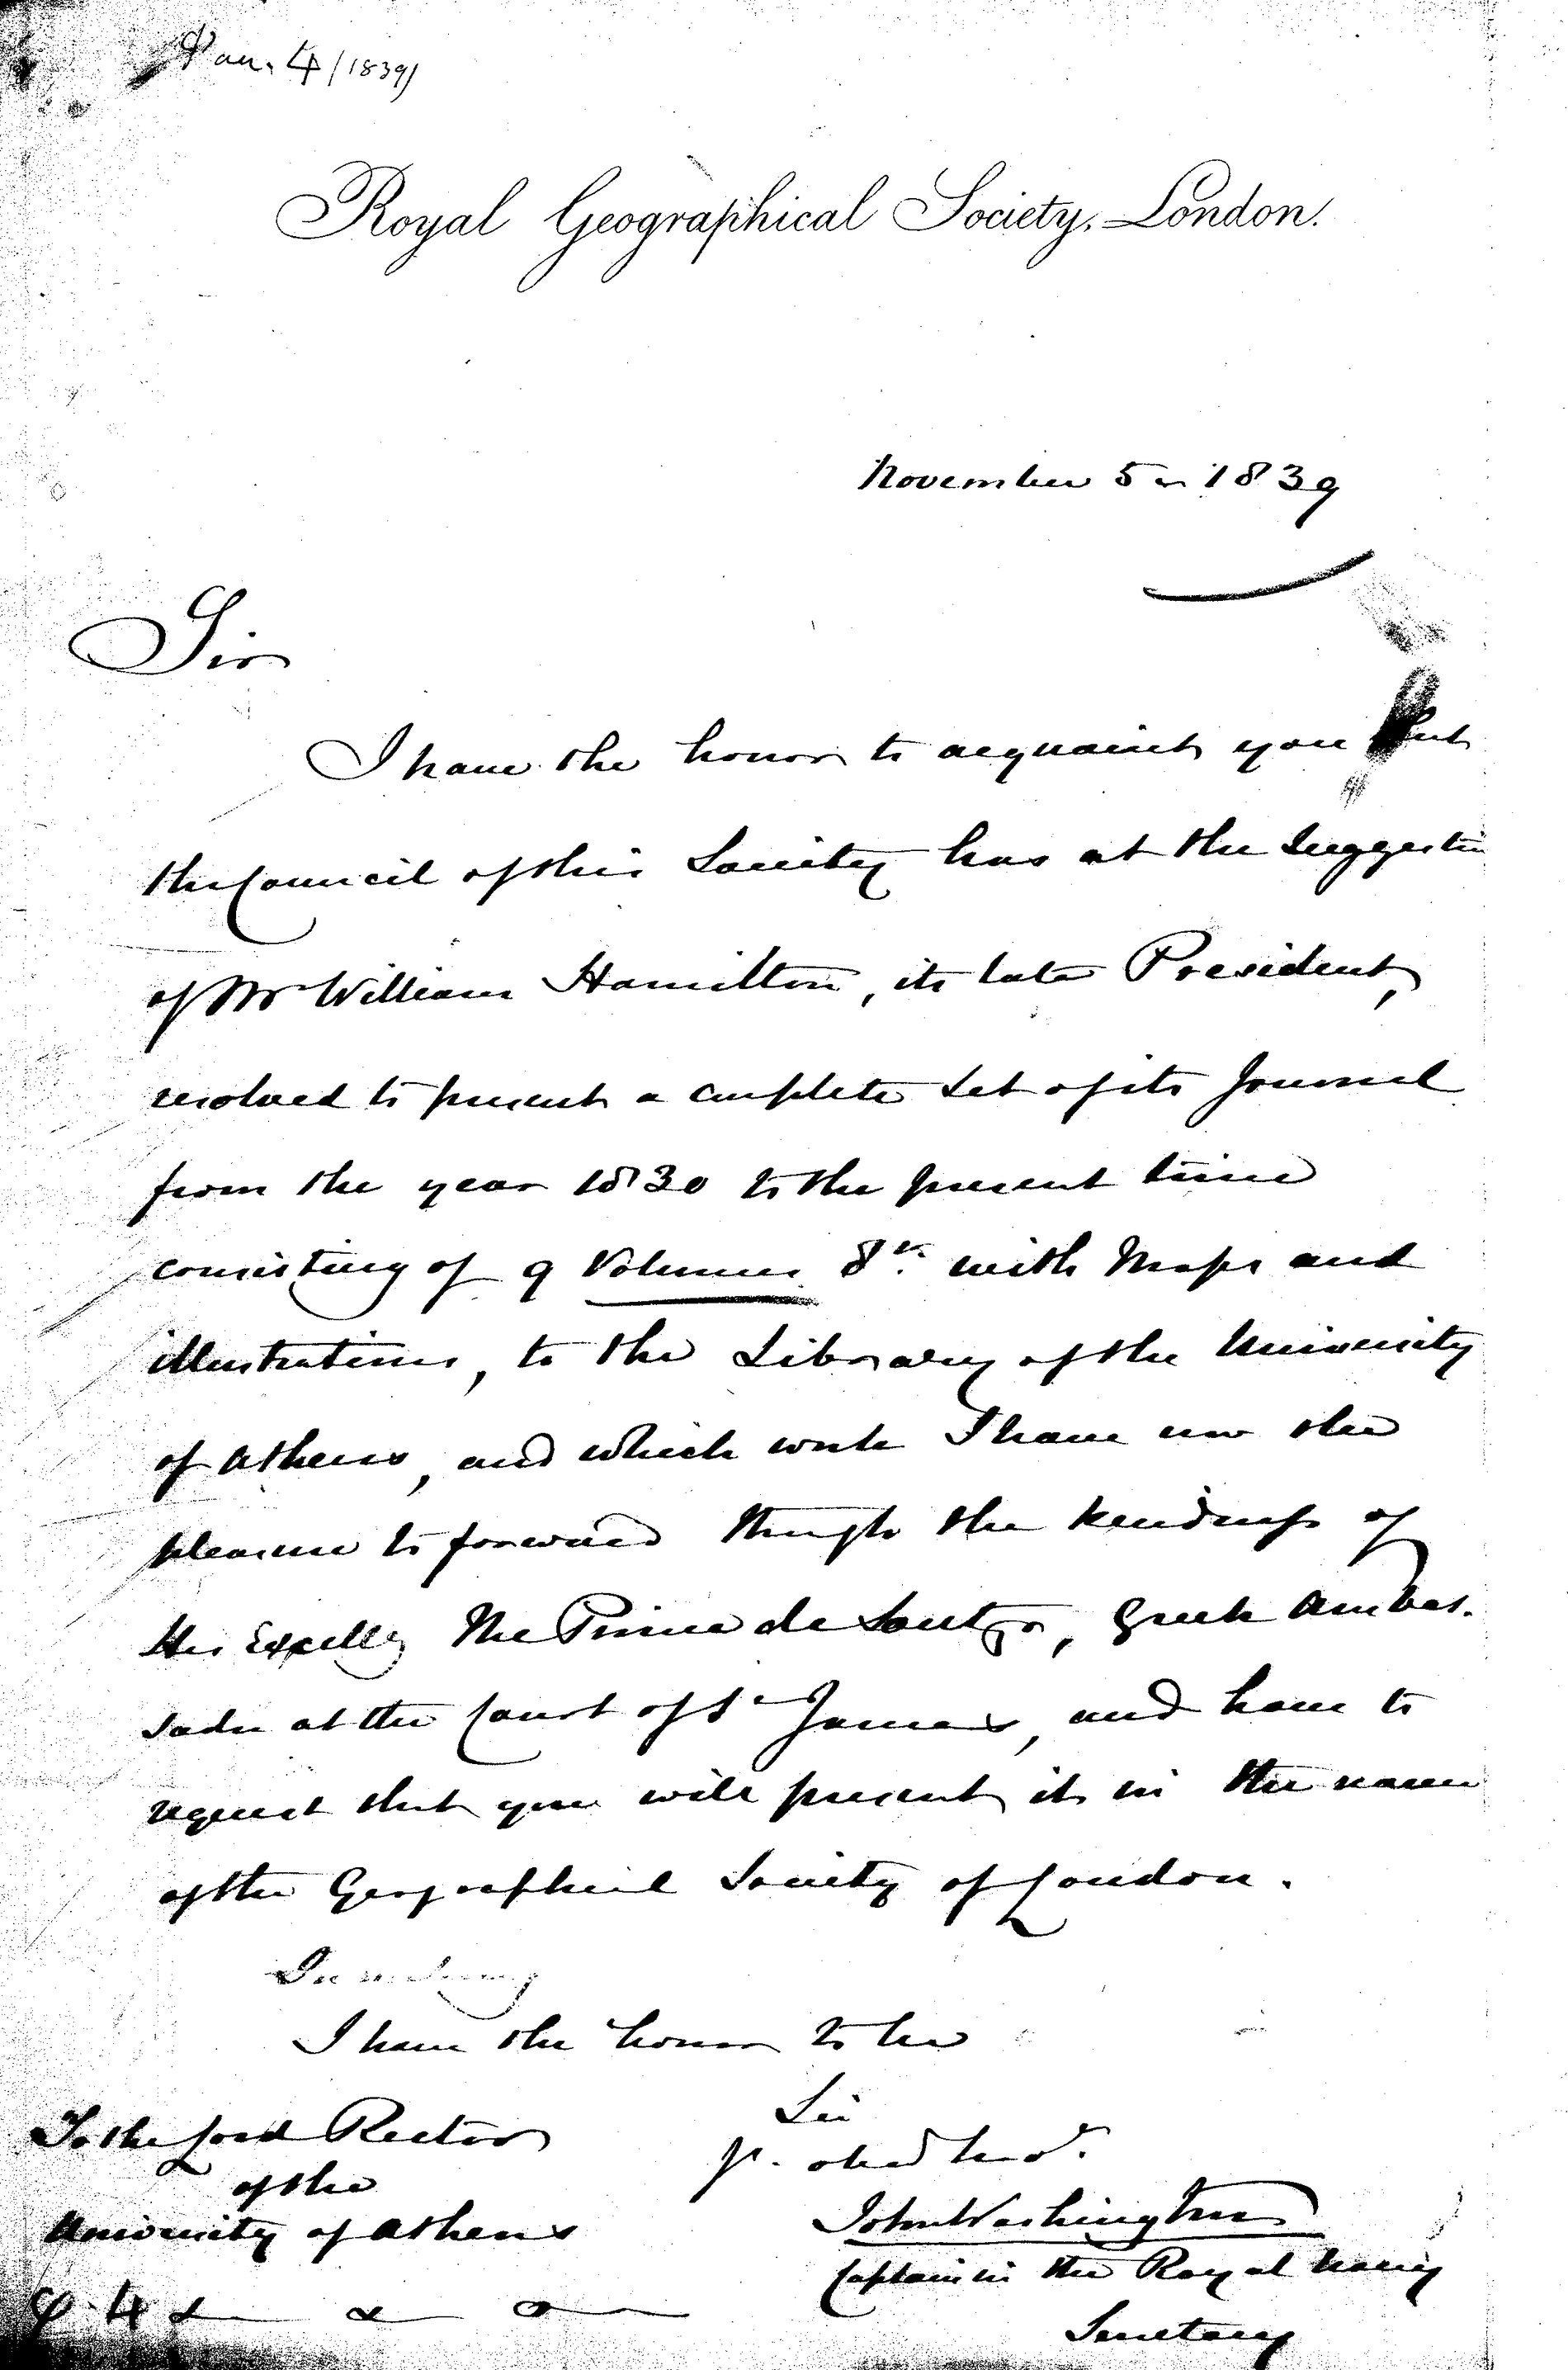 4 (1839)
Royal Geographical Society, London.
November 5 1839
Sir
I have the honor to acquaint you that
the Council of this Society has at the suggestion
of Mr William Hamilton, its late President,
resolved to present a complete set of its Journal
from the year 1830 to the present time
consisting of 9 Volumes 8vo. with Maps and
illustrations, to the Library of the University
of Athens, and which work I have now the
pleasure to forward through the kindness of
His Excelly The Prince de Soutzo, Greek Ambas-
sador at the Court of St James, and have to
request that you will present it in the name
of the Geographical Society of London.
I have the honor to be
Sir
Yr. obed Servt.
John Washington
Captain in the Royal Navy
Secretary
To the Lord Rector
of the
University of Athens
&c &c &c